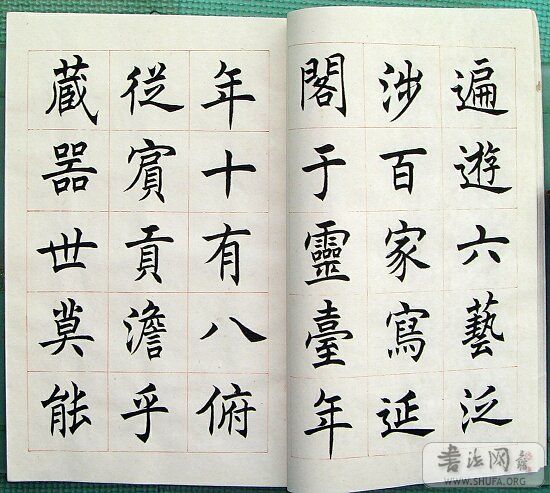 遍遊六藝泛
涉百家寫延
閣于靈臺年
年十有八俯
從賓貢澹乎
藏器世莫能
书法网
WWW.SHUFA.ORG